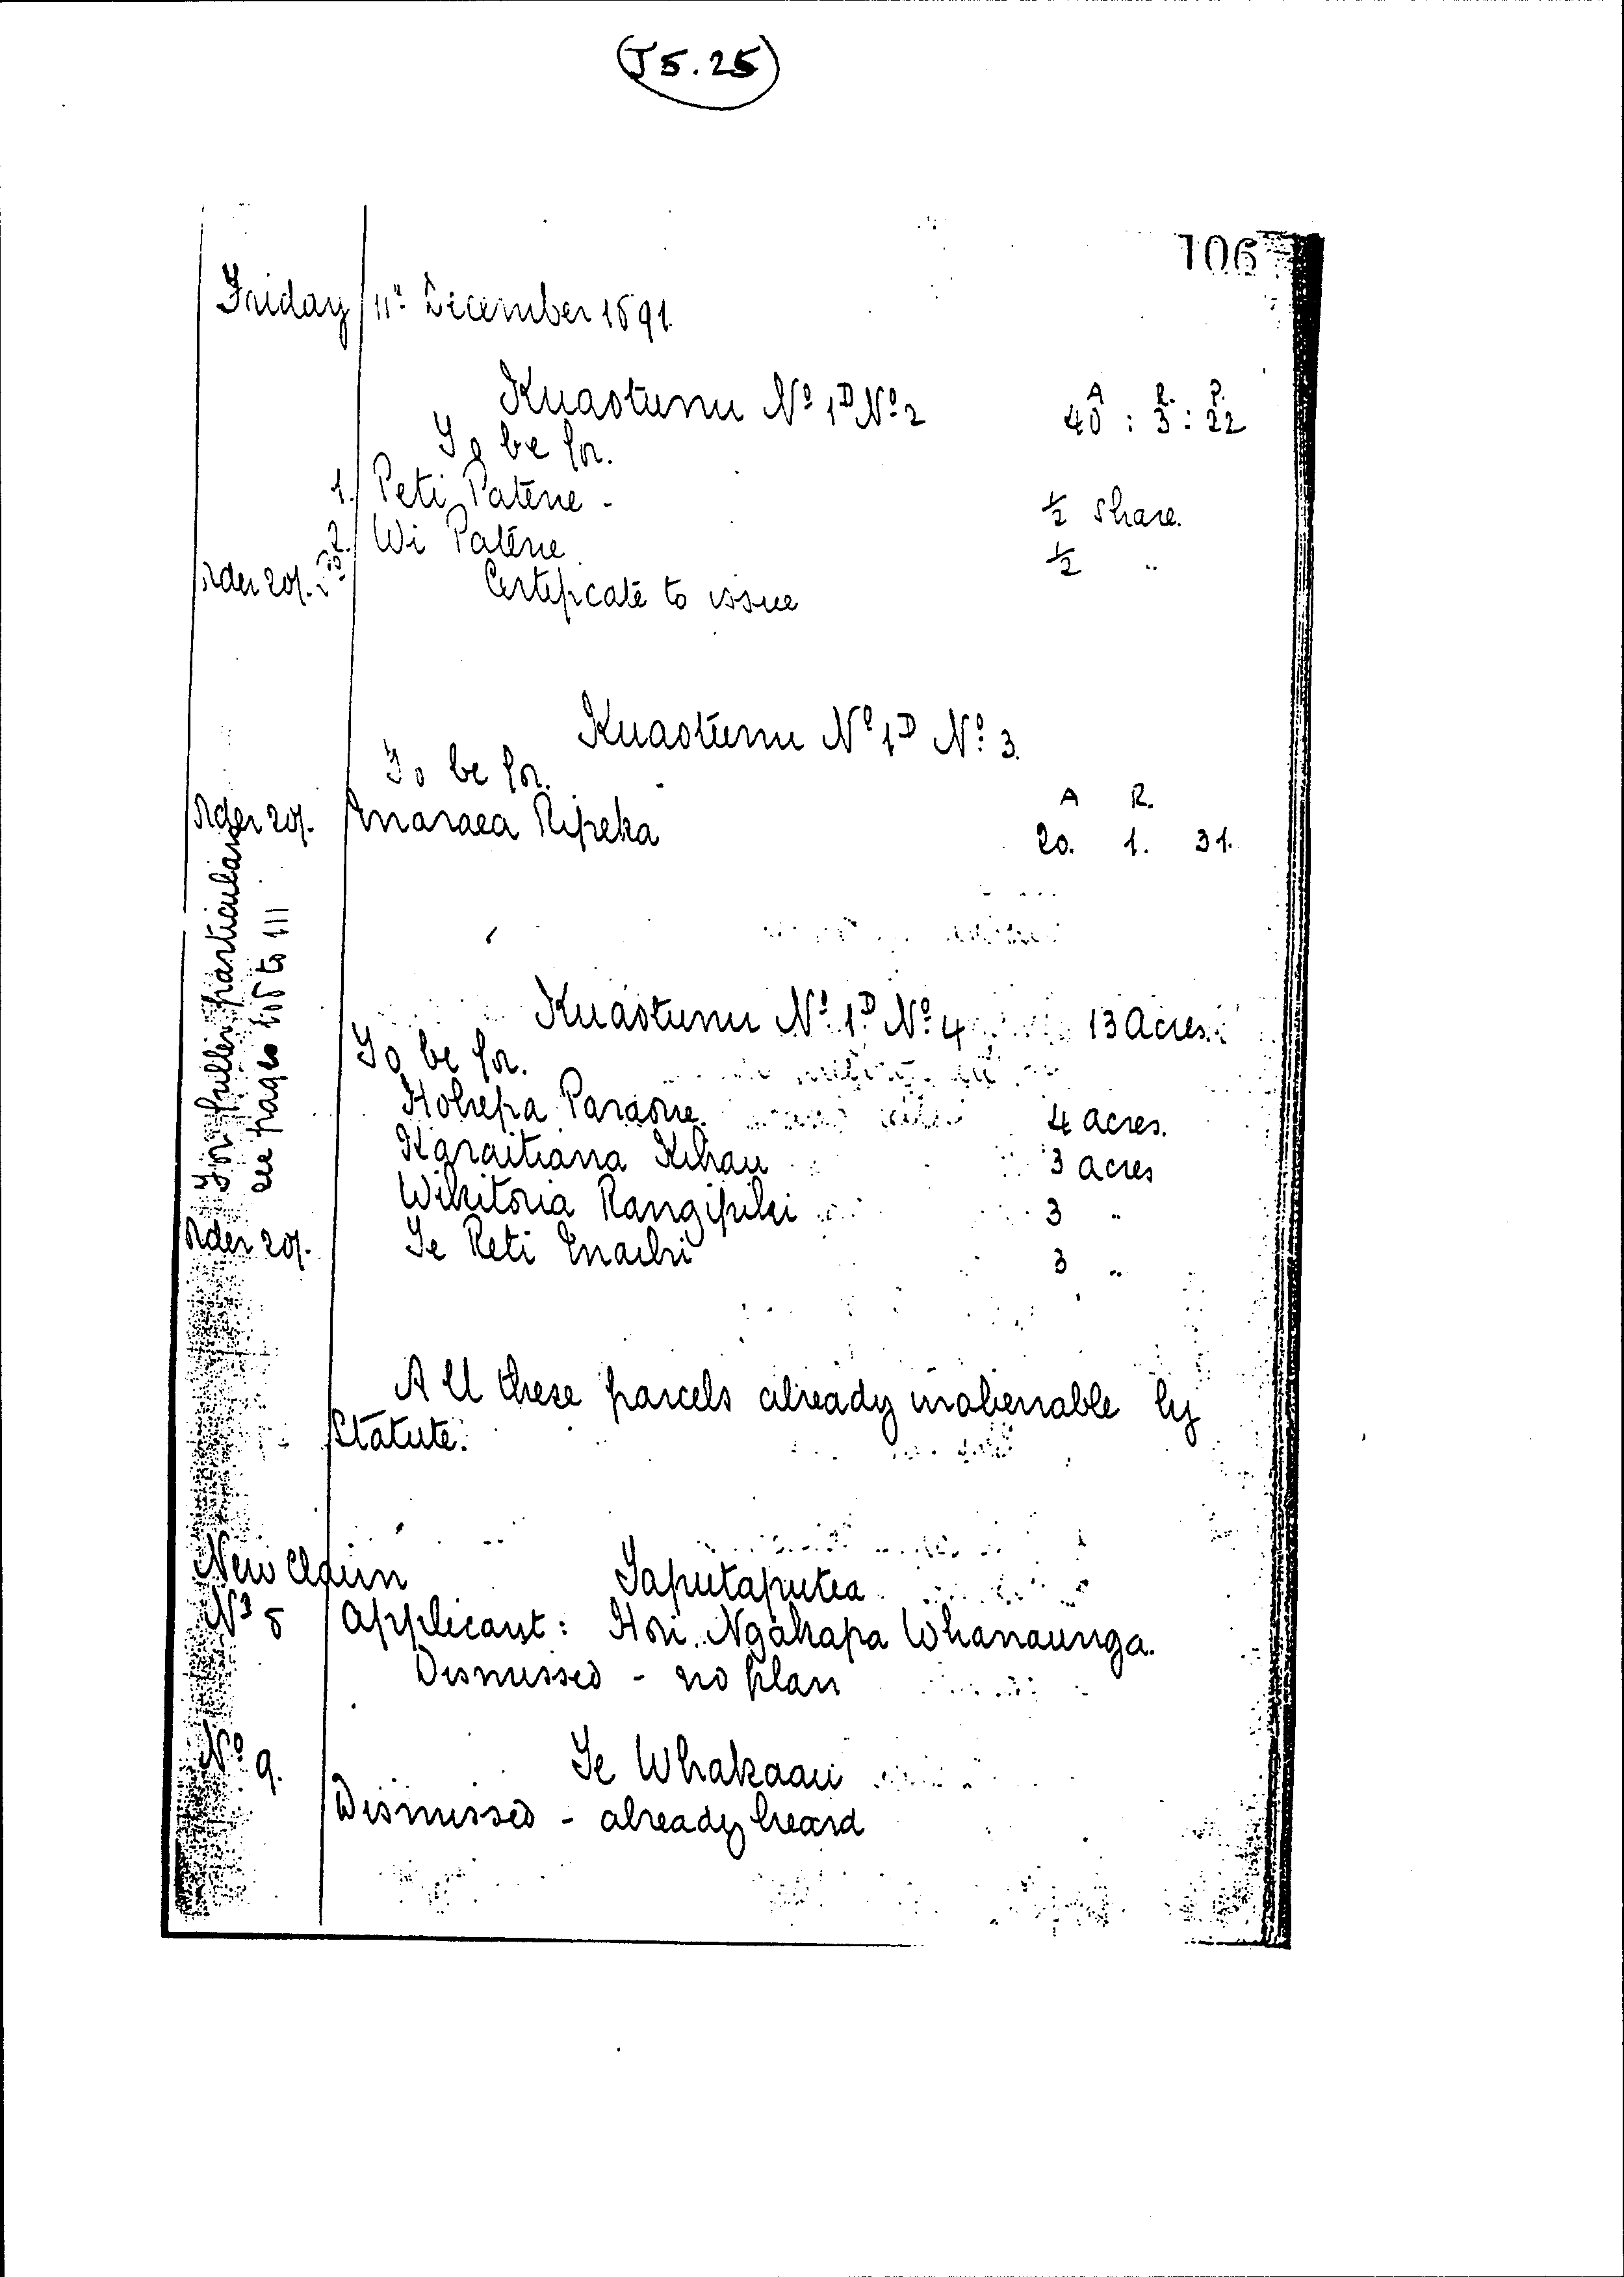 (J5.25)
106
Friday 11th December 1891.
Kuaotunu No 1D No 2
A R. P.
40 : 3 : 22
To be for.
1. Peti Patene - ½ share.
2. Wi Patene ½ "
Order 20/.
Certificate to issue
Kuaotunu No 1D No. 3.
To be for.
A R.
Order 20/. Amaraea Ripeka 20. 1. 31.
For fuller particulars
see pages 108 to 111
Kuaotunu No 1D No. 4 13 Acres.
To be for.
Hohepa Paraone. 4 acres.
Karaitiana Kihau 3 acres
Wikitoria Rangipiki 3 "
Order 20/. Te Reti Enaihi 3 "
All these parcels already inalienable by
Statute.
New Claim Taputaputea
No 8 Applicant: Hori Ngakapa Whanaunga.
Dismissed - no plan
No 9. Te Whakaau
Dismissed - already heard